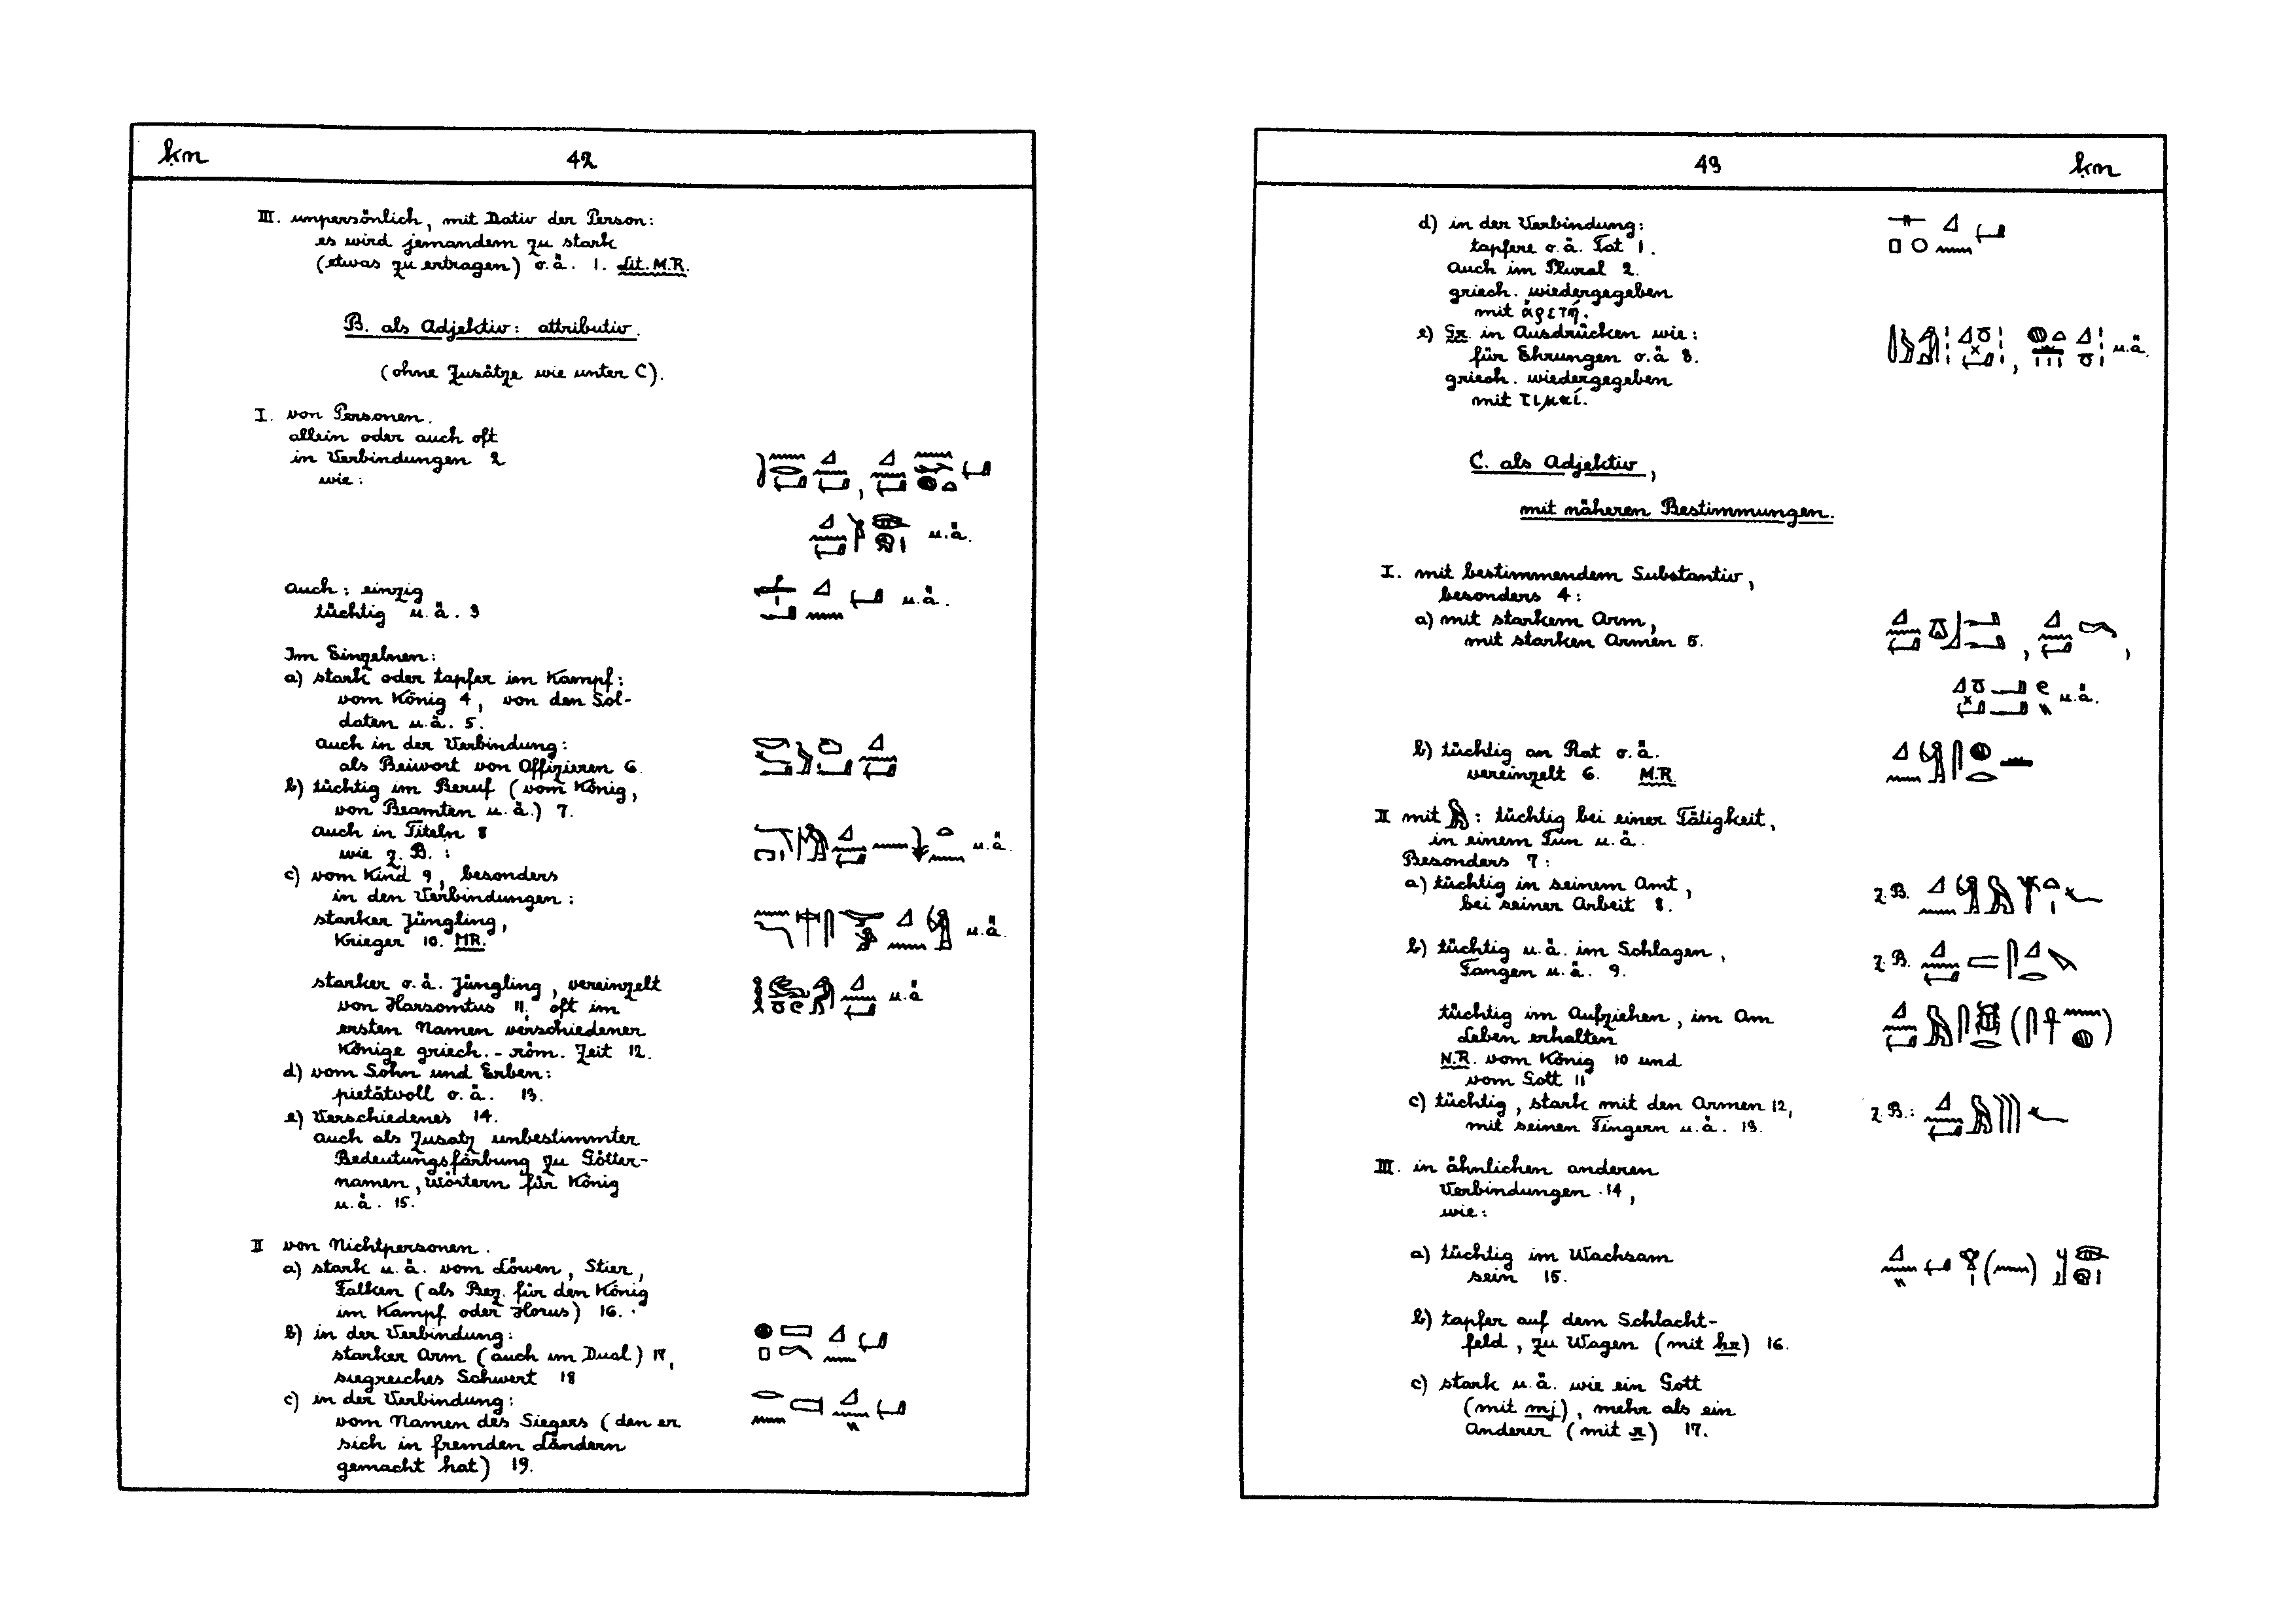 ḳn 42
III. unpersönlich, mit Dativ der Person:
es wird jemandem zu stark
(etwas zu ertragen) o.ä. 1. Lit. M.R.
B. als Adjektiv: attributiv.
(ohne Zusätze wie unter C).
I. von Personen.
allein oder auch oft
in Verbindungen 2
wie:
u.ä.
auch: einzig
tüchtig u.ä. 3 u.ä.
Im Einzelnen:
a) stark oder tapfer im Kampf:
vom König 4, von den Sol-
daten u.ä. 5.
auch in der Verbindung:
als Beiwort von Offizieren 6
b) tüchtig im Beruf (vom König,
von Beamten u.ä.) 7.
auch in Titeln 8
wie z.B.: u.ä.
c) vom Kind 9, besonders
in den Verbindungen:
starker Jüngling,
Krieger 10. MR. u.ä.
starker o.ä. Jüngling, vereinzelt u.ä
von Harsomtus 11, oft im
ersten Namen verschiedener
Könige griech.-röm. Zeit 12.
d) vom Sohn und Erben:
pietätvoll o.ä. 13.
e) Verschiedenes 14.
auch als Zusatz unbestimmter
Bedeutungsfärbung zu Götter-
namen, Wörtern für König
u.ä. 15.
II von Nichtpersonen.
a) stark u.ä. vom Löwen, Stier,
Falken (als Bez. für den König
im Kampf oder Horus) 16.
b) in der Verbindung:
starker Arm (auch im Dual) 17,
siegreiches Schwert 18
c) in der Verbindung:
vom Namen des Siegers (den er
sich in fremden Ländern
gemacht hat) 19.
43 ḳn
d) in der Verbindung:
tapfere o.ä. Tat 1.
Auch im Plural 2.
griech. wiedergegeben
mit ἀρετή.
e) Gr. in Ausdrücken wie: u.ä.
für Ehrungen o.ä 3.
griech. wiedergegeben
mit τιμαί.
C. als Adjektiv,
mit näheren Bestimmungen.
I. mit bestimmendem Substantiv,
besonders 4:
a) mit starkem Arm,
mit starken Armen 5.
u.ä.
b) tüchtig an Rat o.ä.
vereinzelt 6. M.R.
II mit : tüchtig bei einer Tätigkeit,
in einem Tun u.ä.
Besonders 7:
a) tüchtig in seinem Amt, z.B.
bei seiner Arbeit 8.
b) tüchtig u.ä. im Schlagen, z.B.
Fangen u.ä. 9.
tüchtig im Aufziehen, im Am
Leben erhalten
N.R. vom König 10 und
vom Gott 11
c) tüchtig, stark mit den Armen 12, z.B.:
mit seinen Fingern u.ä. 13.
III. in ähnlichen anderen
Verbindungen 14,
wie:
a) tüchtig im Wachsam
sein 15.
b) tapfer auf dem Schlacht-
feld, zu Wagen (mit ḥr) 16.
c) stark u.ä. wie ein Gott
(mit mj), mehr als ein
Anderer (mit r) 17.